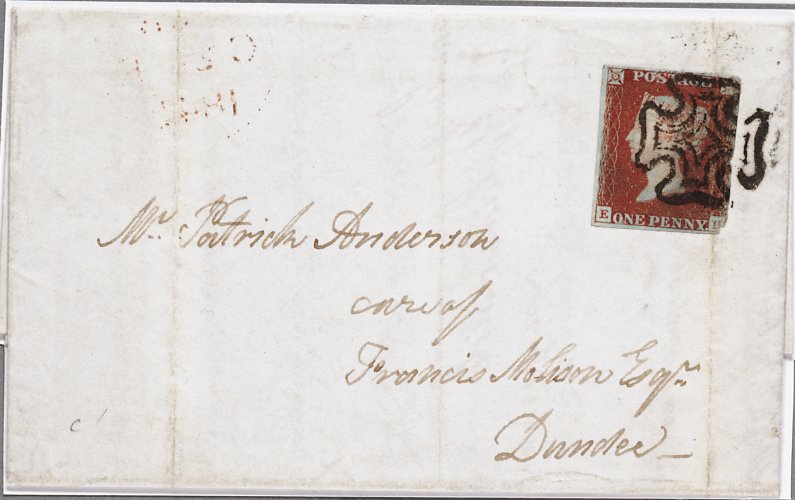 1841
POSTAGE
E
ONE PENNY
Mr. Patrick Anderson
care of
Francis Molison Esqr.
Dundee